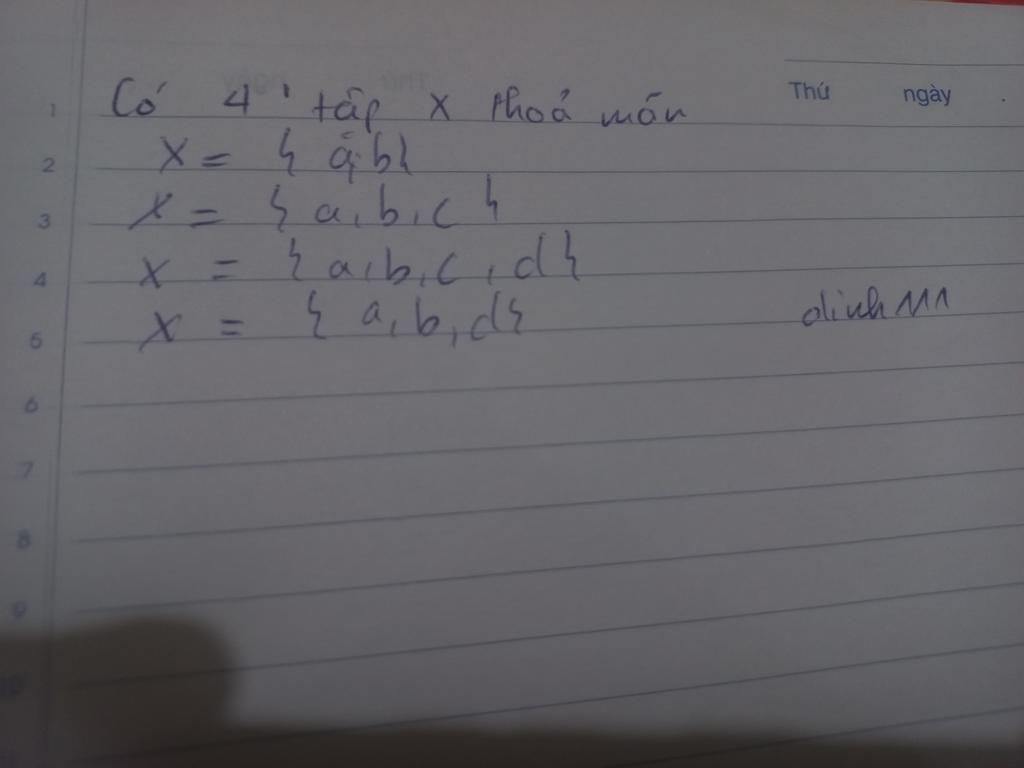 Thứ ngày .
1 Có 4 tập X thoả mãn
2 X = { a, b }
3 X = { a, b, c }
4 X = { a, b, c, d }
5 X = { a, b, d } dinh 111
6
7
8
9
10